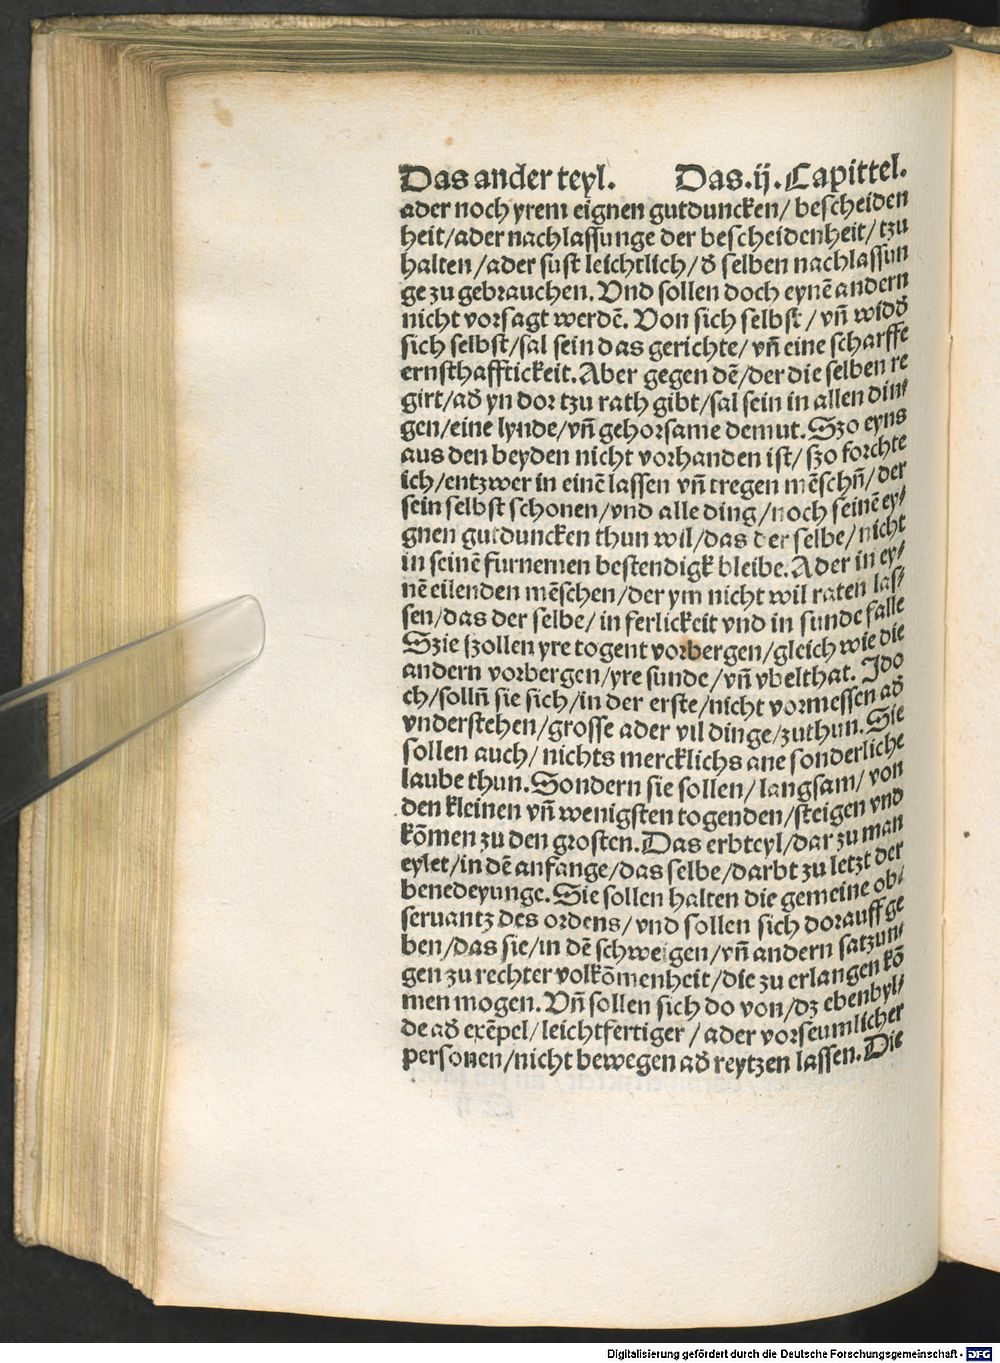 Das ander teyl. Das .ij. Capittel.
ader noch yrem eignen gutduncken/ bescheiden
heit/ader nachlassunge der bescheidenheit/ tzu
halten/ader sust leichtlich/ď selben nachlassun
ge zu gebrauchen. Vnd sollen doch eynē andern
nicht vorsagt werdē. Von sich selbst/ vñ widď
sich selbst/sal sein das gerichte/ vñ eine scharffe
ernsthafftickeit. Aber gegen dē/der die selben re
girt/ aď yn dor tzu rath gibt/sal sein in allen din⸗
gen/eine lynde/vñ gehorsame demut. Szo eyns
aus den beyden nicht vorhanden ist/ szo forchte
ich/entzwer in einē lassen vñ tregen mēschñ/ der
sein selbst schonen/vnd alle ding/noch seinē ey⸗
gnen gutduncken thun wil/das der selbe/ nicht
in seinē furnemen bestendigk bleibe. Ader in ey⸗
nē eilenden mēschen/der ym nicht wil raten las⸗
sen/das der selbe/ in ferlickeit vnd in sunde falle
Szie szollen yre togent vorbergen/gleich wie die
andern vorbergen/yre sunde/vñ vbelthat. Ido
ch/sollñ sie sich/in der erste/nicht vormessen aď
vnderstehen/grosse ader vil dinge/zuthun. Sie
sollen auch/ nichts mercklichs ane sonderliche
laube thun. Sondern sie sollen/ langsam/ von
den kleinen vñ wenigsten togenden/steigen vnd
kōmen zu den grosten. Das erbteyl/dar zu man
eylet/in dē anfange/das selbe/darbt zu letzt der
benedeyunge. Sie sollen halten die gemeine ob⸗
seruantz des ordens/vnd sollen sich dorauff ge
ben/das sie/in dē schweigen/vñ andern satzun⸗
gen zu rechter volkōmenheit/die zu erlangen kō
men mogen. Vñ sollen sich do von/dz ebenbyl⸗
de aď exēpel/leichtfertiger/ ader vorseumlicher
personen/nicht bewegen aď reytzen lassen. Die
Digitalisierung gefördert durch die Deutsche Forschungsgemeinschaft - DFG